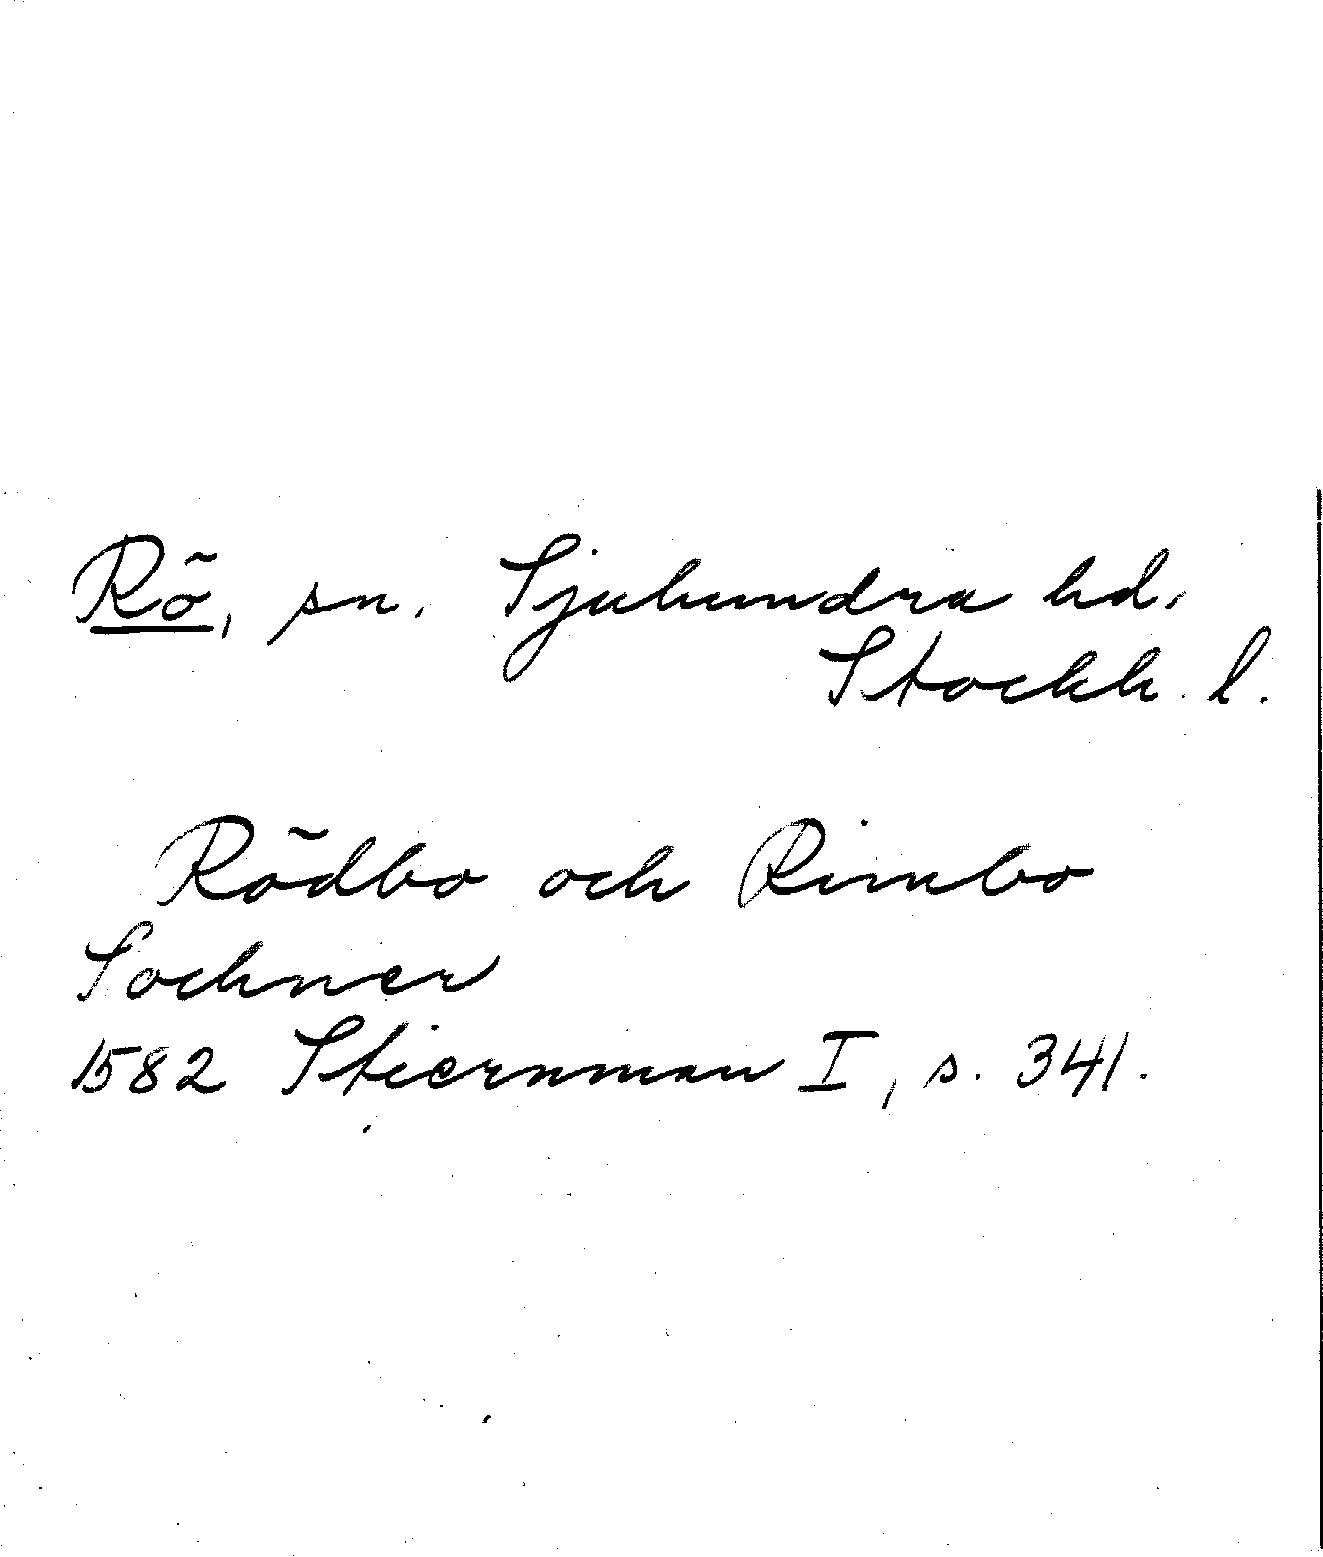 Rö, sn. Sjuhundra hd.
Stockh. l.
Rödbo och Rimbo
Sochner
1582 Stiernman I, s. 341.